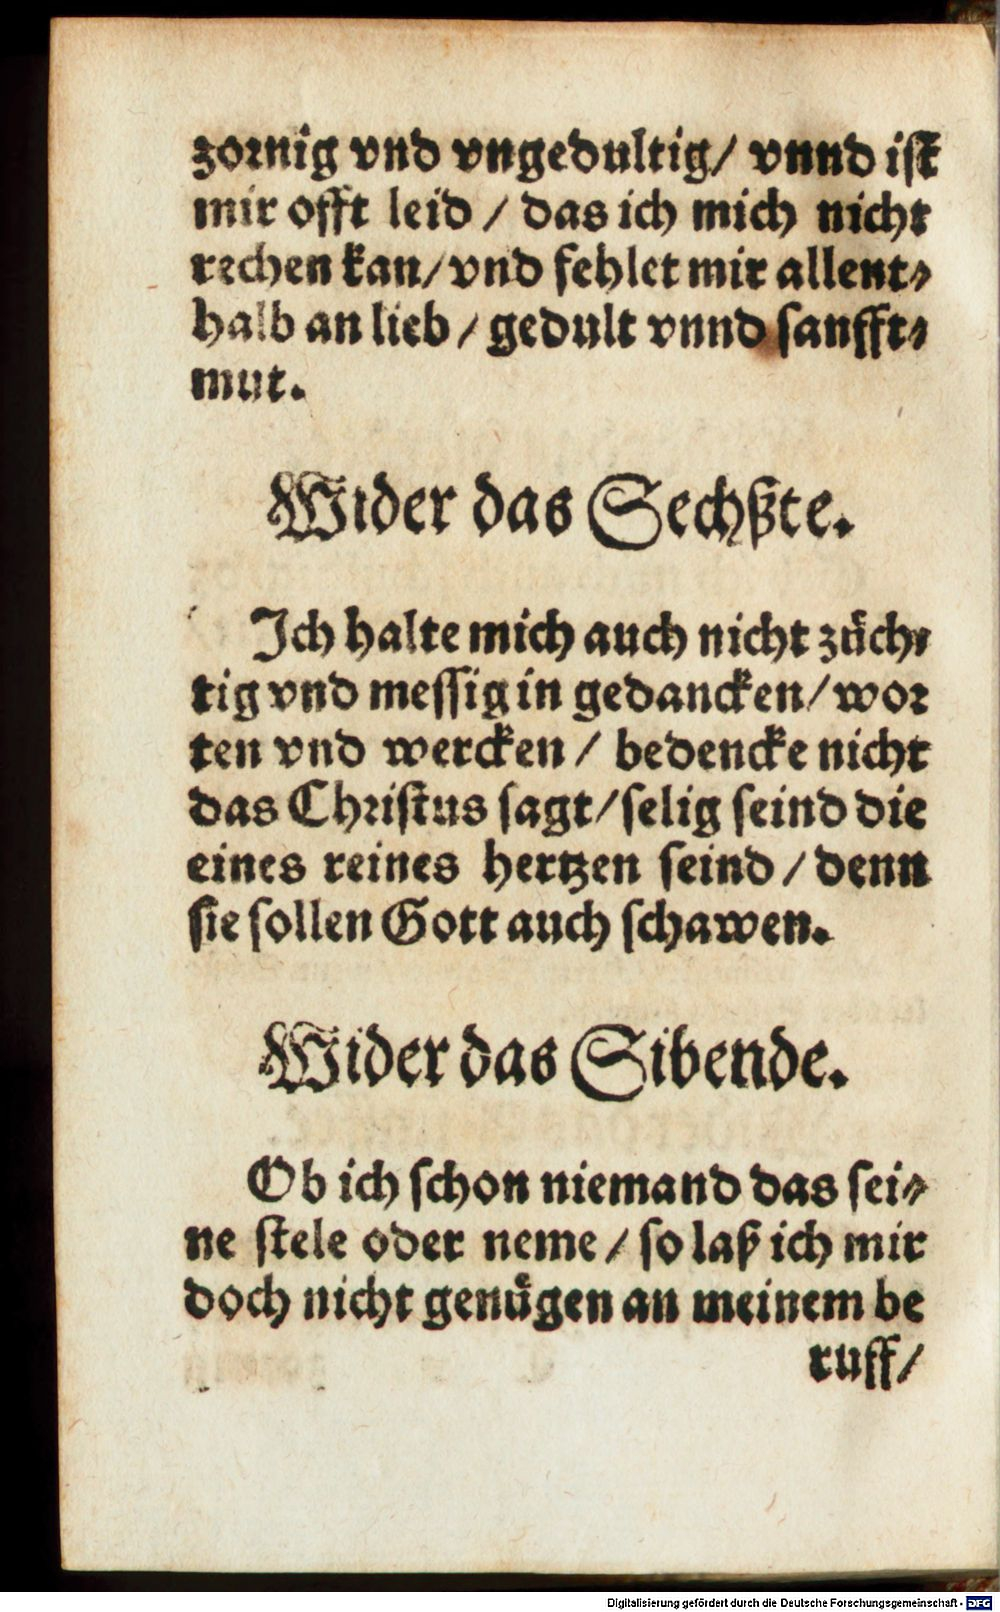 zornig vnd vngedultig/ vnnd ist
mir offt leid / das ich mich nicht
rechen kan/vnd fehlet mir allent⸗
halb an lieb / gedult vnnd sanfft⸗
mut.
Wider das Sechßte.
Ich halte mich auch nicht züch⸗
tig vnd messig in gedancken/ wor
ten vnd wercken / bedencke nicht
das Christus sagt/selig seind die
eines reines hertzen seind / denn
sie sollen Gott auch schawen.
Wider das Sibende.
Ob ich schon niemand das sei⸗
ne stele oder neme / so laß ich mir
doch nicht genügen an meinem be
ruff/
Digitalisierung gefördert durch die Deutsche Forschungsgemeinschaft - DFG